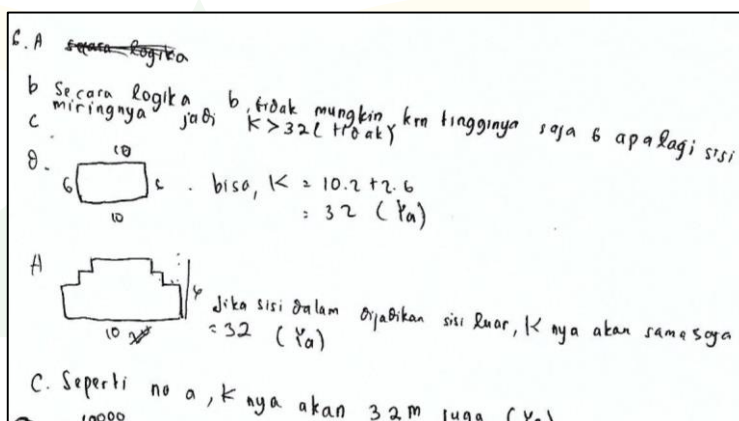 6. A secara logika
b Secara logika b, tidak mungkin krn tingginya saja 6 apalagi sisi
miringnya jadi K > 32 (tidak)
c
D.
10
6
6
10
. bisa, K = 10.2 + 2.6
= 32 (Ya)
A
10
Jika sisi dalam dijadikan sisi luar, K nya akan sama saja
= 32 (Ya)
C. Seperti no a, K nya akan 32 m juga (Ya)
10000